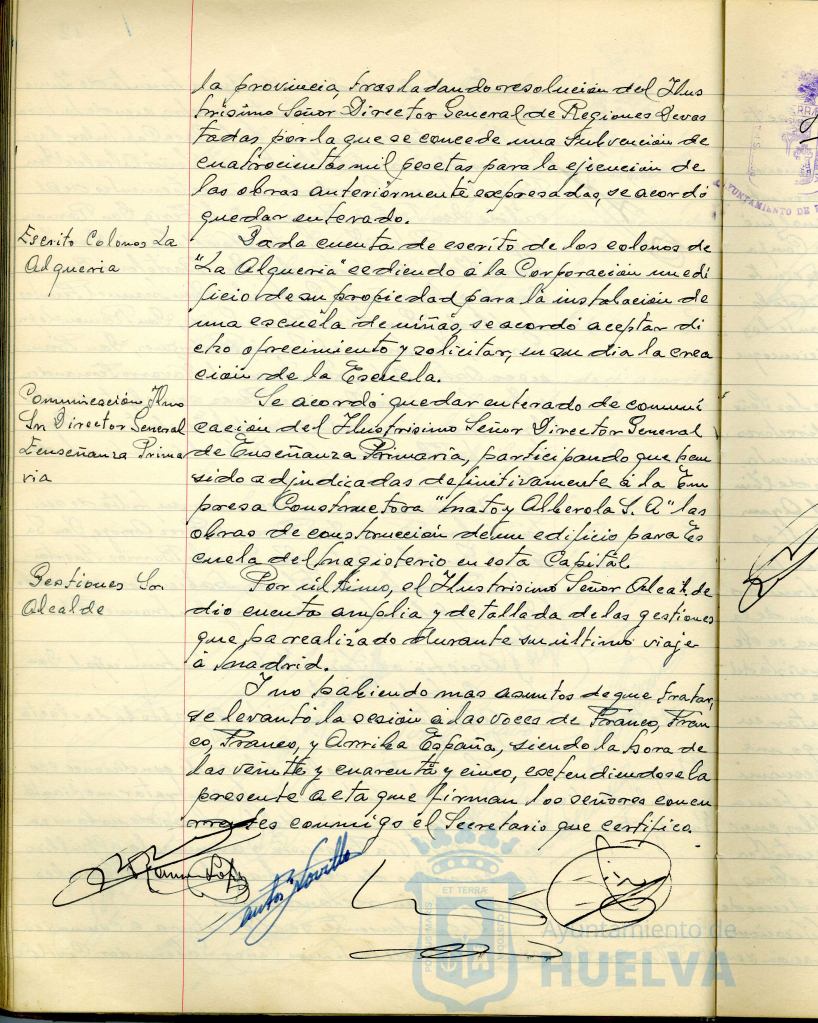 la provincia, trasladando resolución del Ilus
trísimo Señor Director General de Regiones Devas
tadas, por la que se concede una subvención de
cuatrocientas mil pesetas para la ejecución de
las obras anteriormente expresadas, se acordó
quedar enterado.
Escrito Colonos La
Alqueria
Dada cuenta de escrito de los colonos de
"La Alqueria" cediendo á la Corporación un edi
ficio de su propiedad para la instalación de
una escuela de niñas, se acordó aceptar di
cho ofrecimiento y solicitar, en su dia la crea
ción de la Escuela.
Comunicación Ilmo
Sr Director General
Enseñanza Prima
ria
Se acordó quedar enterado de comuni
cación del Ilustrisimo Señor Director General
de Enseñanza Primaria, participando que han
sido adjudicadas definitivamente á la Em
presa Constructora "Mato y Alberola S. A" las
obras de construcción de un edificio para Es
cuela del Magisterio en esta Capital.
Gestiones Sr
Alcalde
Por último, el Ilustrisimo Señor Alcalde
dio cuenta amplia y detallada de las gestiones
que ha realizado durante su último viaje
á Madrid.
Y no habiendo mas asuntos de que tratar,
se levantó la sesión á las voces de Franco, Fran
co, Franco, y Arriba España, siendo la hora de
las veinte y cuarenta y cinco, extendiendose la
presente acta que firman los señores concu
rrentes conmigo el Secretario que certifico.
Ayuntamiento de
HUELVA